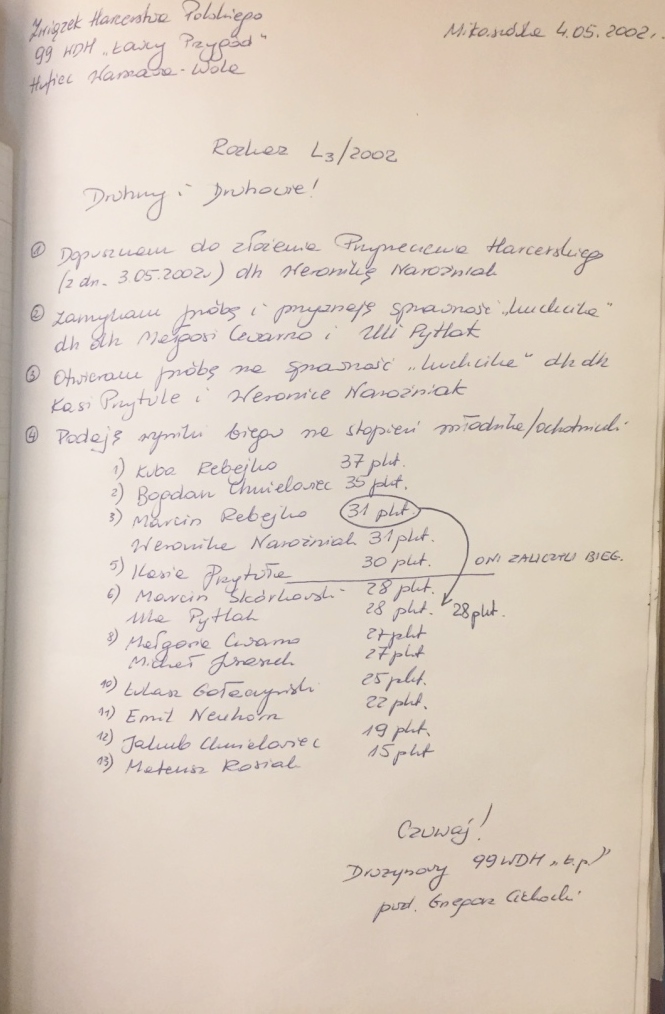 Związek Harcerstwa Polskiego
99 WDH „Łowcy Przygód”
Hufiec Warszawa-Wola
Mikaszówka 4.05.2002r.
Rozkaz L3/2002
Druhny i Druhowie!
① Dopuszczam do złożenia Przyrzeczenia Harcerskiego
(z dn. 3.05.2002r) dh Weronikę Naroźniak
② Zamykam próbę i przyznaję sprawność „kuchcika”
dh dh Małgosi Czarno i Uli Pytlak
③ Otwieram próbę na sprawność „kuchcika” dh dh
Kasi Przytule i Weronice Naroźniak
④ Podaję wyniki biegu na stopień młodzika/ochotniczki.
1) Kuba Rebejko 37 pkt.
2) Bogdan Chmielowiec 35 pkt.
3) Marcin Rebejko 31 pkt.
Weronika Naroźniak 31 pkt.
5) Kasia Przytuła 30 pkt. ONI ZALICZYLI BIEG.
6) Marcin Skórkowski 28 pkt.
Ula Pytlak 28 pkt. 28 pkt.
8) Małgosia Czarno 27 pkt
Michał 27 pkt
10) Łukasz Gołaszyński 25 pkt.
11) Emil Neuhorn 22 pkt.
12) Jakub Chmielowiec 19 pkt.
13) Mateusz Rosiak 15 pkt
Czuwaj!
Drużynowy 99 WDH „Ł.P.”
pwd. Grzegorz Cichocki